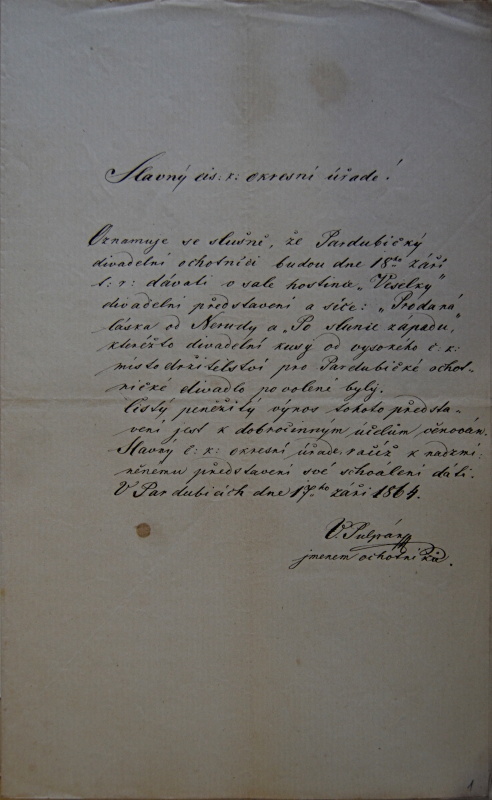 Slavný cis: r: okresní úřade!
Oznamuje se slušně, že Pardubičký
divadelní ochotníci budou dne 18ho září
t: r: dávati v sale hostince „Veselky"
divadelní představení a sice: „Prodaná
láska od Nerudy a „Po slunce západu,"
kteréžto divadelní kusy od vysokého c. k:
místodržitelství pro Pardubičké ochot-
nické divadlo povolené byly.
Čistý peněžitý výnos tohoto předsta-
vení jest k dobročinným účelům věnován.
Slavný c: k: okresní úřade račiž k nadzmí-
něnému představení své schválení dáti.
V Pardubicích dne 17ho září 1864.
V. Pulpán
jmenem ochotníků.
1